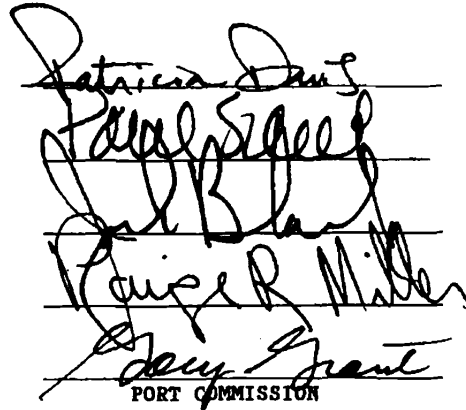 Patricia Davis
Jack Block
Paige R Miller
Gary Grant
PORT COMMISSION